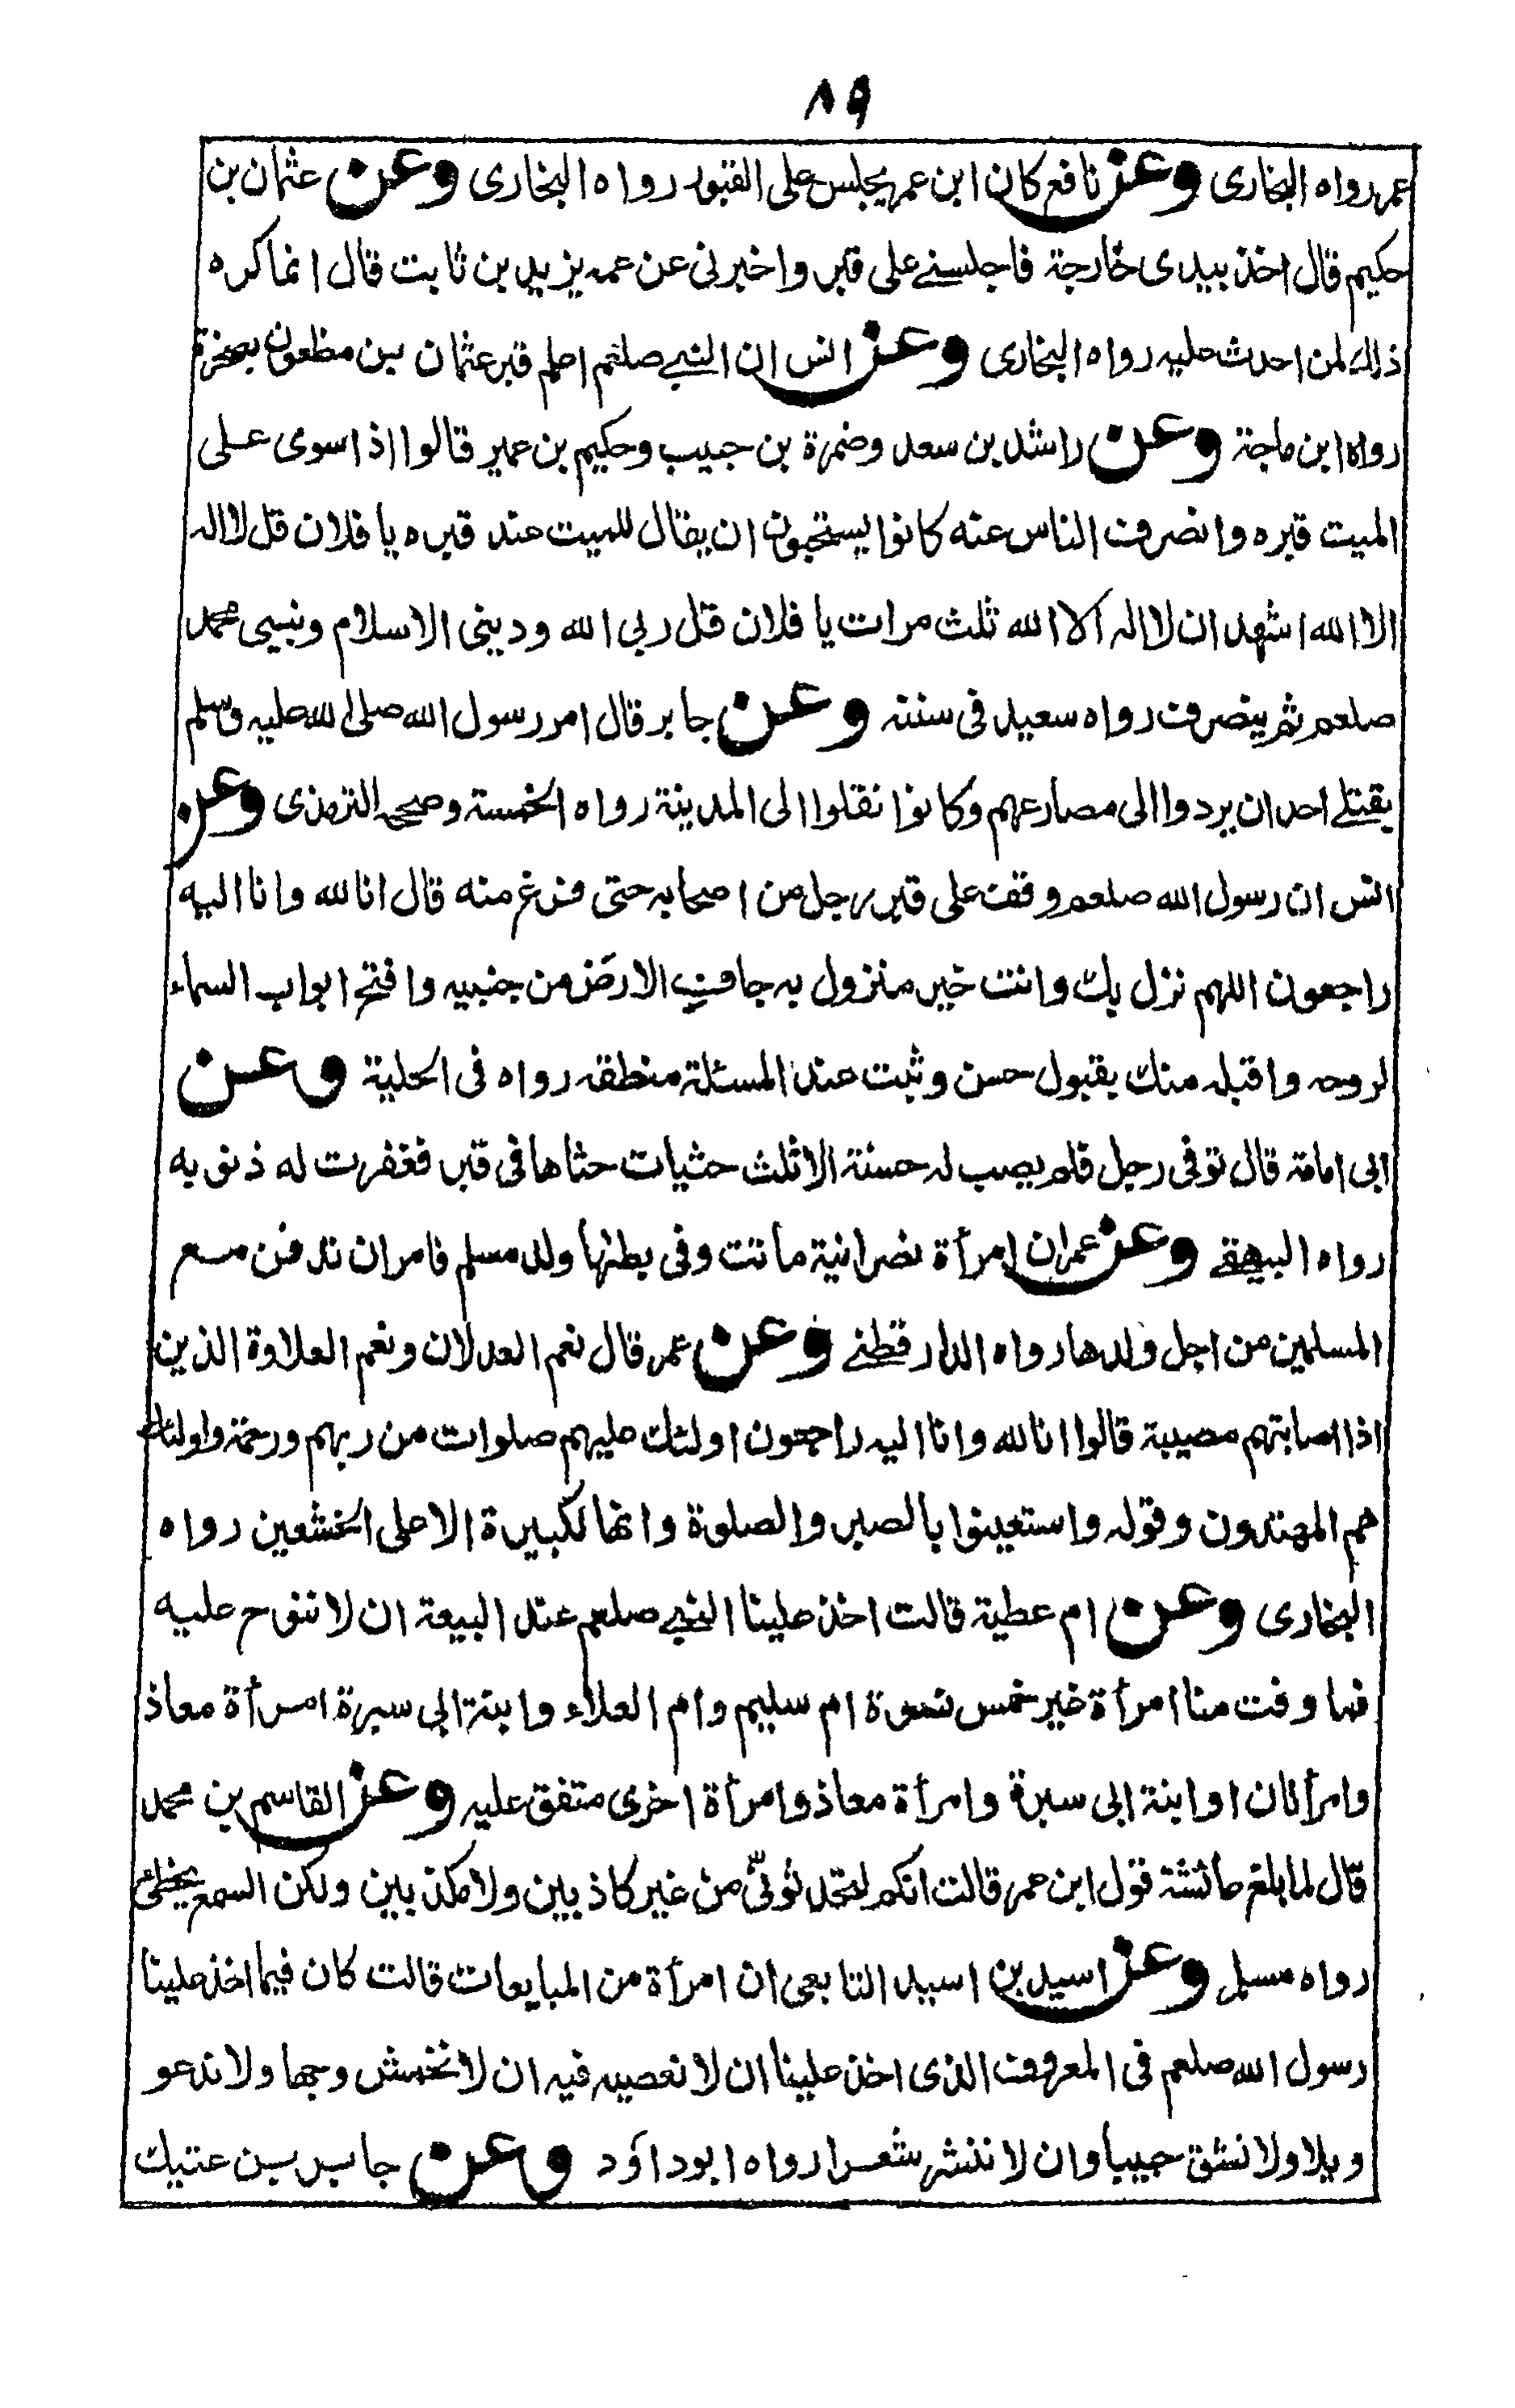 ٨٩
عمر رواه البخارى وعن نافع كان ابن عمر يجلس على القبور رواه البخارى وعن عثمان بن
حكيم قال اخذ بيدى خارجة فاجلسنے على قبر واخبرنى عن عمه يزيد بن ثابت قال انما كره
ذلك لمن احدث عليه رواه البخارى وعن انس ان النبے صلعم اعلم قبر عثمان بن مظعون بصخرة
رواه ابن ماجة وعن راشد بن سعد وضمرة بن حبيب وحكيم بن عمير قالوا اذا سوى على
الميت قبره وانصرف الناس عنه كانوا يستحبون ان يقال للميت عند قبره يا فلان قل لا اله
الا الله اشهد ان لا اله الا الله ثلث مرات يا فلان قل ربى الله ودينى الاسلام ونبيى محمد
صلعم ثم ينصرف رواه سعيد فى سننه وعن جابر قال امر رسول الله صلى الله عليه وسلم
بقتلے احد ان يردوا الى مصارعهم وكانوا نقلوا الى المدينة رواه الخمسة وصححه الترمذى وعن
انس ان رسول الله صلعم وقف على قبر رجل من اصحابه حتى فرغ منه قال انا لله وانا اليه
راجعون اللهم نزل بك وانت خير منزول به جاف الارض من جنبيه وافتح ابواب السماء
لروحه واقبله منك بقبول حسن وثبت عند المسئلة منطقه رواه فى الحلية وعن
ابى امامة قال توفى رجل فلم يصب له حسنة الا ثلث حثيات حثاها فى قبر فغفرت له ذنوبه
رواه البيهقے وعن عمر ان امرأة نصرانية ماتت وفى بطنها ولد مسلم فامر ان تدفن مع
المسلمين من اجل ولدها رواه الدارقطنے وعن عمر قال نعم العدلان ونعم العلاوة الذين
اذا اصابتهم مصيبة قالوا انا لله وانا اليه راجعون اولئك عليهم صلوات من ربهم ورحمة واولئك
هم المهتدون وقوله واستعينوا بالصبر والصلوة وانها لكبيرة الا على الخشعين رواه
البخارى وعن ام عطية قالت اخذ علينا النبے صلعم عند البيعة ان لا ننوح عليه
فما وفت منا امرأة غير خمس نسوة ام سليم وام العلاء وابنة ابى سبرة امرأة معاذ
وامرأتان او ابنة ابى سبرة وامرأة معاذ وامرأة اخرى متفق عليه وعن القاسم بن محمد
قال لما بلغ عائشة قول ابن عمر قالت انكم لتحدثونّى من غير كاذبين ولا مكذبين ولكن السمع يخطئ
رواه مسلم وعن اسيد بن اسيد التابعى ان امرأة من المبايعات قالت كان فيما اخذ علينا
رسول الله صلعم فى المعروف الذى اخذ علينا ان لا نعصيه فيه ان لا نخمش وجها ولا ندعو
ويلا ولا نشق جيبا وان لا ننشر شعرا رواه ابوداؤد وعن جابر بن عتيك